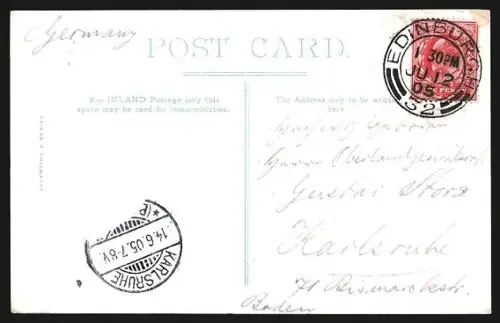 Germany
POST CARD.
For INLAND Postage only this
space may be used for communication.
The Address only to be written
here.
EDINBURGH
1 30PM
JU 12
05
52
VALENTINE'S SERIES
Herrn Oberlandgerichtsrat
Gustav
Karlsruhe
71 Bismarckstr.
Baden
KARLSRUHE
14.6.05.7-8V.